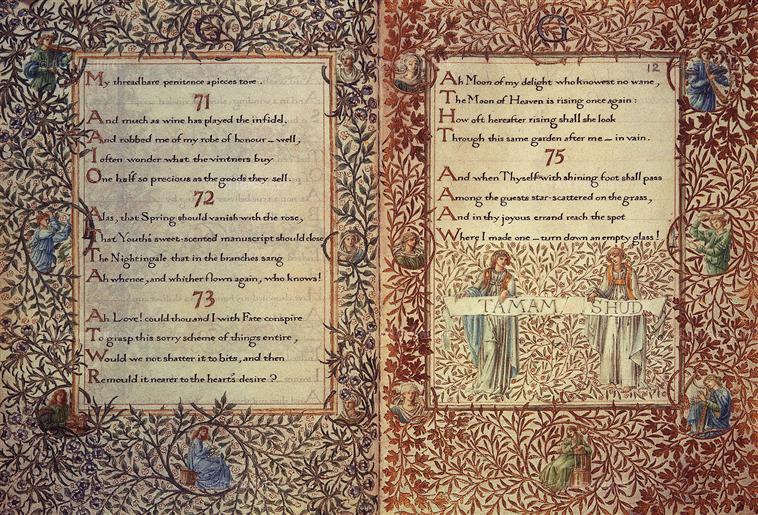 G
My threadbare penitence apieces tore.
71
And much as wine has played the infidel,
And robbed me of my robe of honour — well,
I often wonder what the vintners buy
One half so precious as the goods they sell.
72
Alas, that Spring should vanish with the rose,
That Youth's sweet-scented manuscript should close
The Nightingale that in the branches sang
Ah whence, and whither flown again, who knows!
73
Ah Love! could thou and I with Fate conspire
To grasp this sorry scheme of things entire,
Would we not shatter it to bits, and then
Remould it nearer to the heart's desire?
G
12
Ah Moon of my delight who knowest no wane,
The Moon of Heaven is rising once again:
How oft hereafter rising shall she look
Through this same garden after me — in vain.
75
And when Thyself with shining foot shall pass
Among the guests star-scattered on the grass,
And in thy joyous errand reach the spot
Where I made one — turn down an empty glass!
TAMAM SHUD